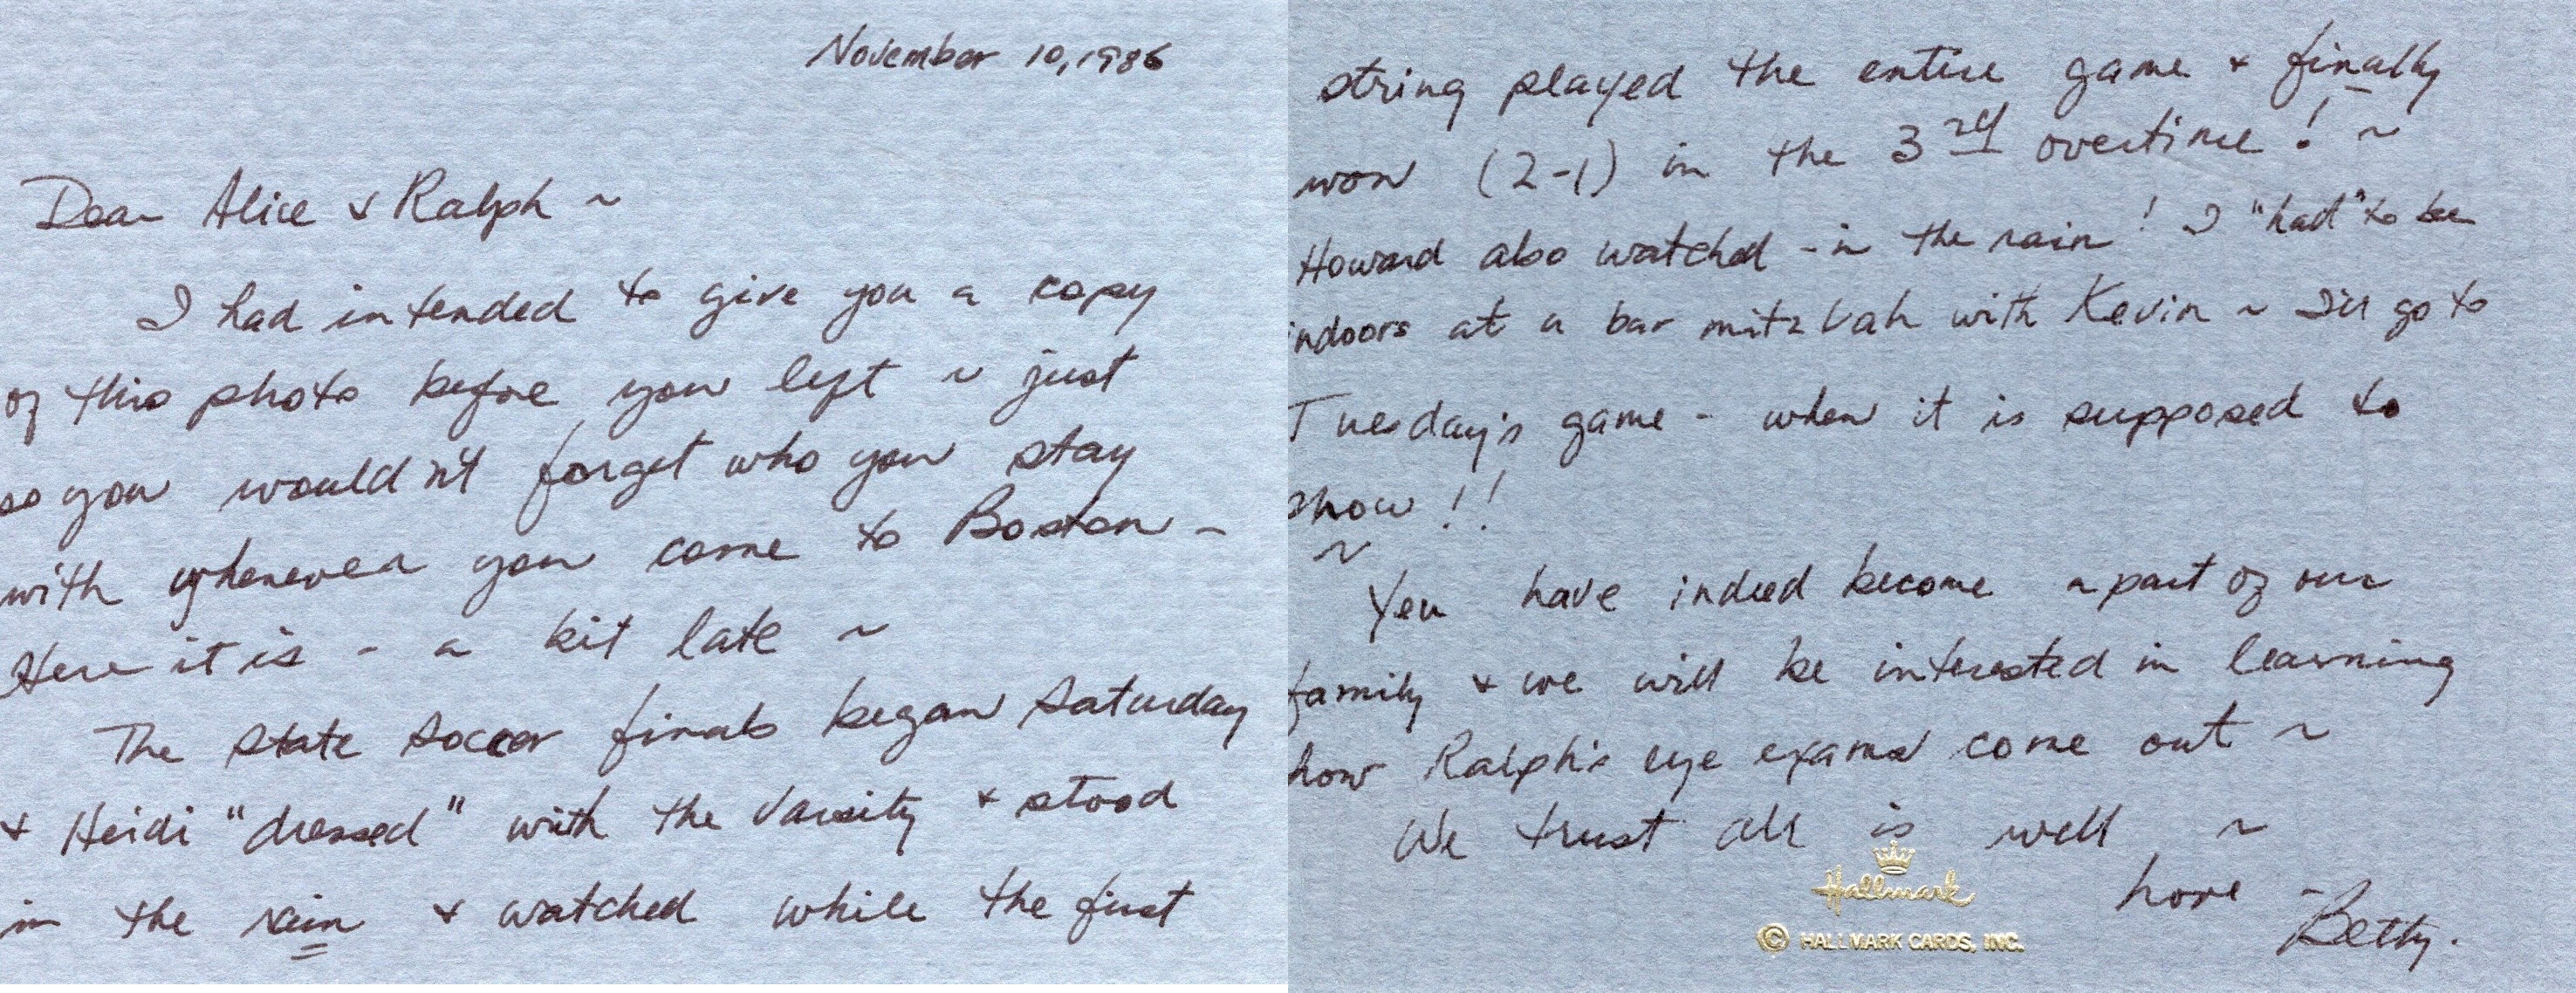 November 10, 1986
Dear Alice & Ralph ~
I had intended to give you a copy
of this photo before you left ~ just
so you wouldn't forget who you stay
with whenever you come to Boston -
Here it is - a bit late ~
The State Soccer finals began Saturday
& Heidi "dressed" with the Varsity & stood
in the rain & watched while the first
string played the entire game & finally
won (2-1) in the 3rd overtime! ~
Howard also watched - in the rain! I "had" to be
indoors at a bar mitzvah with Kevin ~ I'll go to
Tuesday's game - when it is supposed to
snow!!
~
You have indeed become a part of our
family & we will be interested in learning
how Ralph's eye exams come out ~
We trust all is well ~
Love -
Betty.
Hallmark
© HALLMARK CARDS, INC.